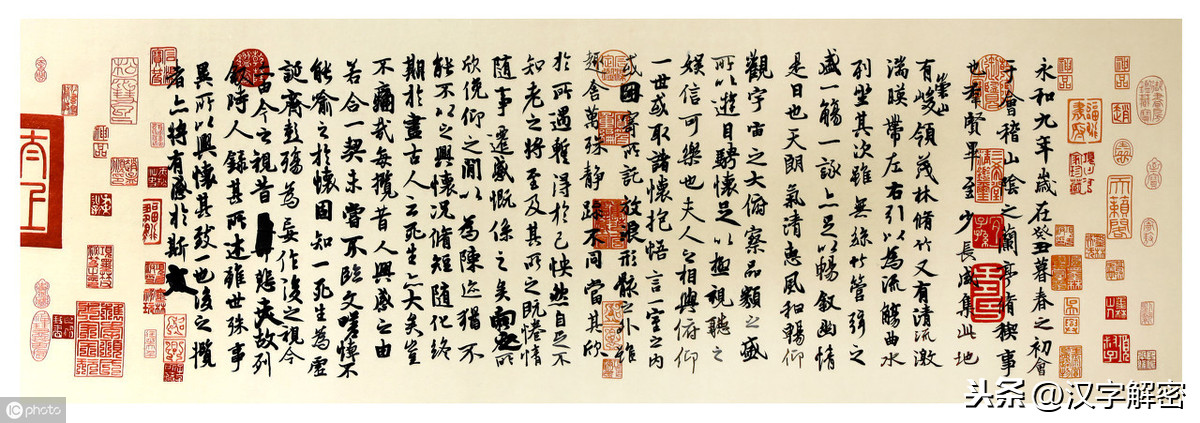 永和九年歲在癸丑暮春之初會
于會稽山陰之蘭亭脩稧事
也羣賢畢至少長咸集此地
有崇山峻領茂林脩竹又有清流激
湍暎帶左右引以為流觴曲水
列坐其次雖無絲竹管弦之
盛一觴一詠亦足以暢敘幽情
是日也天朗氣清惠風和暢仰
觀宇宙之大俯察品類之盛
所以遊目騁懷足以極視聽之
娛信可樂也夫人之相與俯仰
一世或取諸懷抱悟言一室之內
或因寄所託放浪形骸之外雖
趣舍萬殊靜躁不同當其欣
於所遇暫得於己怏然自足不
知老之將至及其所之既惓情
隨事遷感慨係之矣向之所
欣俛仰之間以為陳迹猶不
能不以之興懷況脩短隨化終
期於盡古人云死生亦大矣豈
不痛哉每攬昔人興感之由
若合一契未嘗不臨文嗟悼不
能喻之於懷固知一死生為虛
誕齊彭殤為妄作後之視今
亦由今之視昔悲夫故列
敘時人錄其所述雖世殊事
異所以興懷其致一也後之攬
者亦將有感於斯文
头条 @汉字解密
iC photo